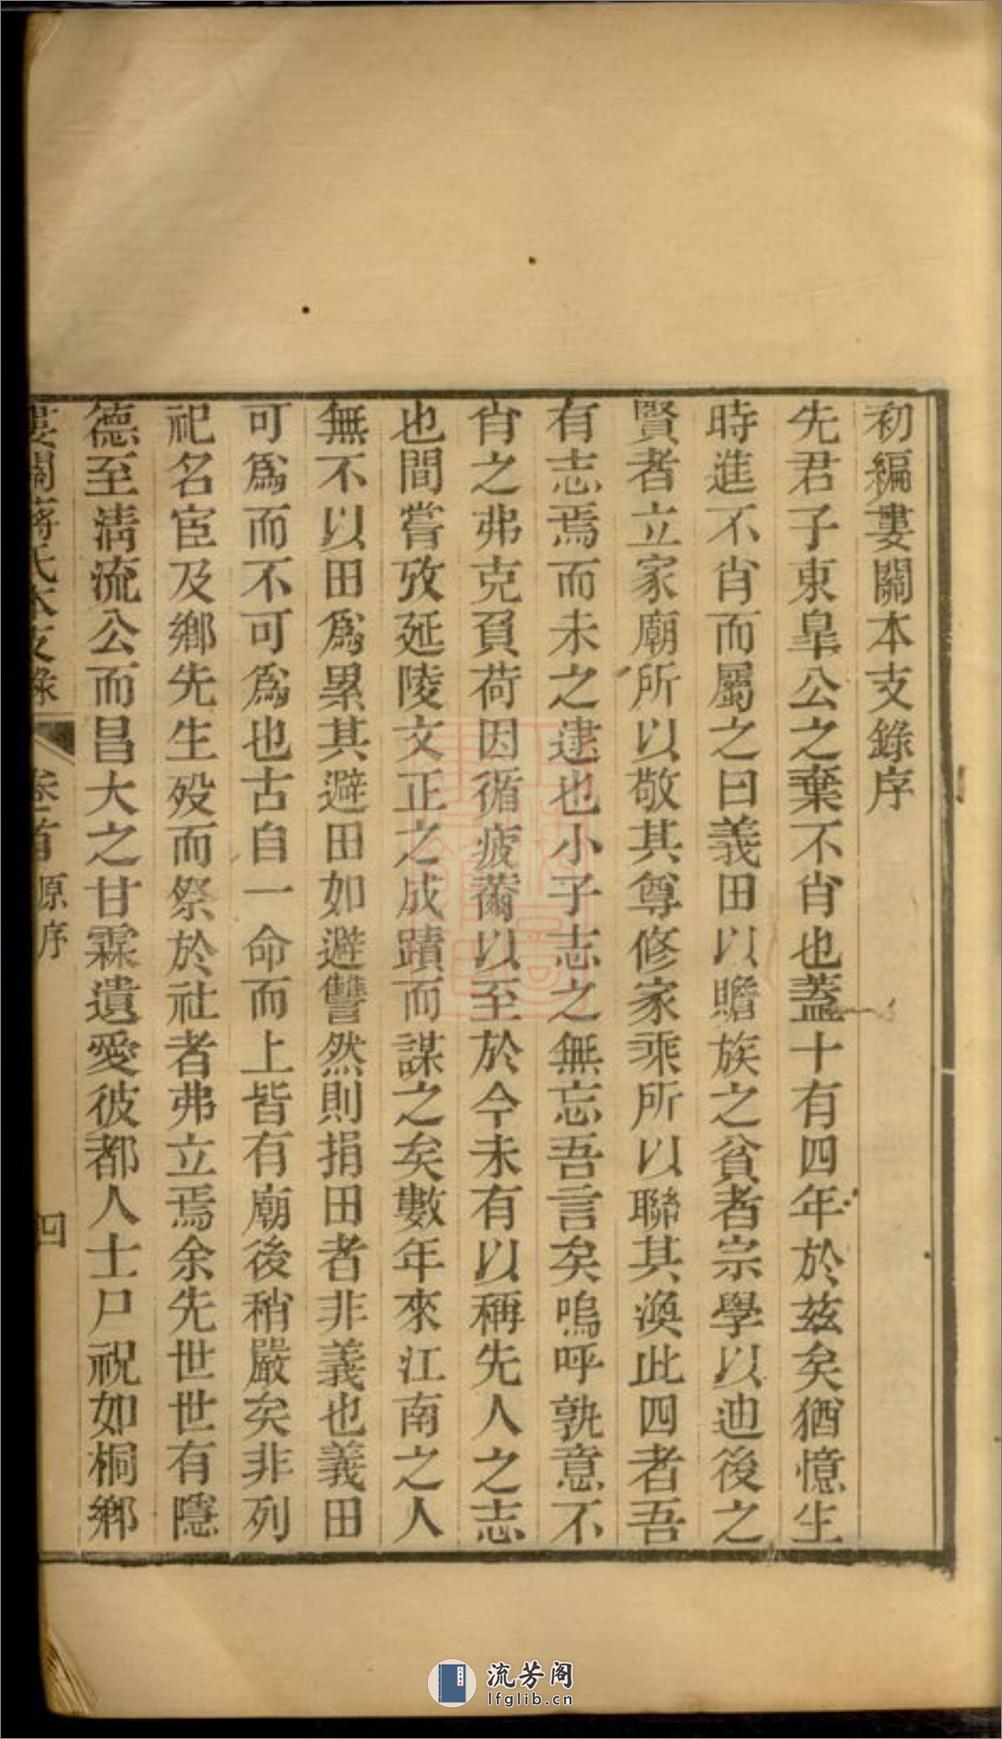 初編婁關本支錄序
先君子東皐公之棄不肖也蓋十有四年於茲矣猶憶生
時進不肖而屬之曰義田以贍族之貧者宗學以迪後之
賢者立家廟所以敬其尊修家乘所以聯其渙此四者吾
有志焉而未之逮也小子志之無忘吾言矣嗚呼孰意不
肖之弗克負荷因循疲薾以至於今未有以稱先人之志
也間嘗攷延陵文正之成蹟而謀之矣數年來江南之人
無不以田爲累其避田如避讐然則捐田者非義也義田
可爲而不可爲也古自一命而上皆有廟後稍嚴矣非列
祀名宦及鄉先生歿而祭於社者弗立焉余先世世有隱
德至淸流公而昌大之甘霖遺愛彼都人士尸祝如桐鄉
婁關蔣氏本支錄 卷首 原序 四
流芳阁
lfglib.cn